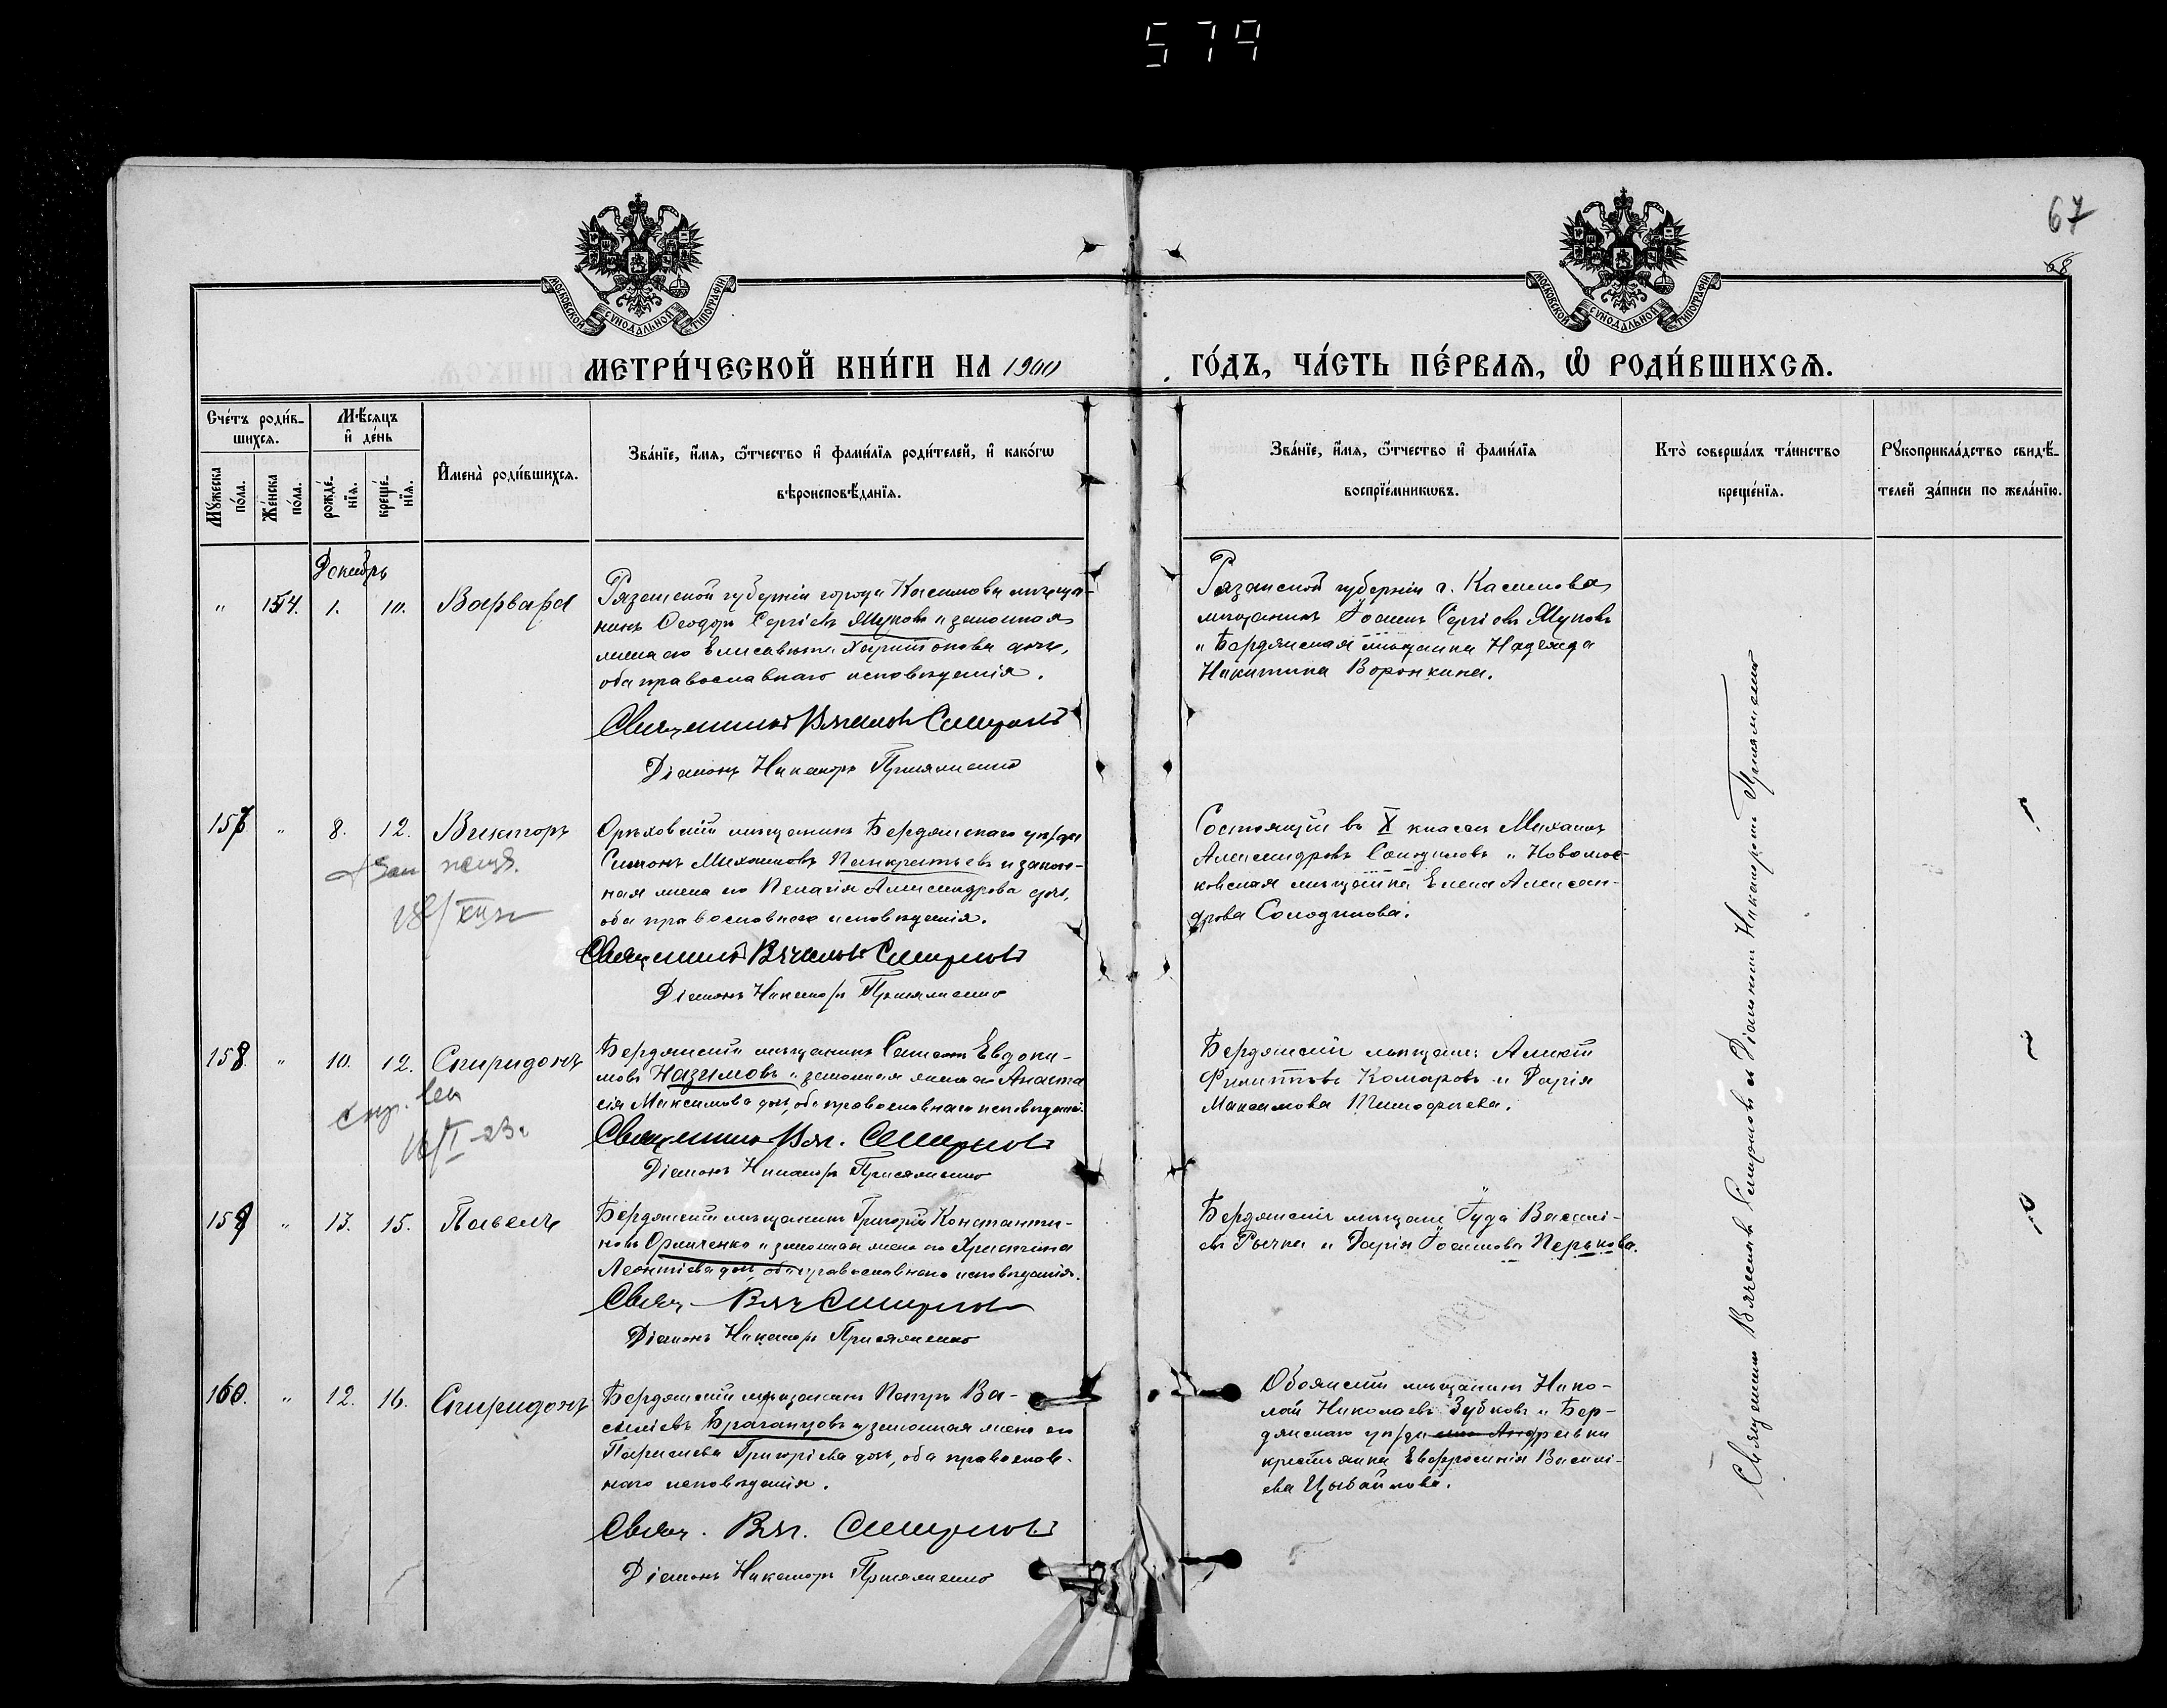 579
67
68
МОСКОВСКОЙ СѴНОДАЛЬНОЙ ТИПОГРАФІИ
МОСКОВСКОЙ СѴНОДАЛЬНОЙ ТИПОГРАФІИ
МЕТРИ́ЧЕСКОЙ КНИ́ГИ НА 1900
ГО́ДЪ, ЧА́СТЬ ПЕ́РВАѦ, Ѽ РОДИ́ВШИХСѦ.
Сче́тъ роди́в-
шихсѧ.
Мѣ́сѧцъ
и҆ де́нь
Мꙋ́жеска по́ла.
Же́нска по́ла.
рожде́-
нїѧ.
креще́-
нїѧ.
И҆мена̀ роди́вшихсѧ.
Зва́нїе, и҆́мѧ, ѻ҆́тчество и҆ фами́лїѧ роди́телей, и҆ како́гѡ
вѣроисповѣ́данїѧ.
Зва́нїе, и҆́мѧ, ѻ҆́тчество и҆ фами́лїѧ
воспрїе́мникѡвъ.
Кто̀ соверша́лъ та́инство
креще́нїѧ.
Рꙋкоприкла́дство свидѣ́-
телей за́писи по жела́нїю.
Декабрь
" 154. 1. 10. Варвара
Рязанской губерніи города Касимова мѣща-
нинъ Ѳеодоръ Сергіевъ Жуковъ и законная
жена его Елисавета Харитонова дочь,
оба православнаго исповѣданія.
Священникъ Вячеславъ Смирновъ
Діаконъ Никаноръ Присяженко
Рязанской губерніи г. Касимова
мѣщанинъ Іоаннъ Сергіевъ Жуковъ
и Бердянская мѣщанка Надежда
Никитина Воронкина.
157. " 8. 12. Викторъ
Орѣховскій мѣщанинъ Бердянскаго уѣзда
Симонъ Михаиловъ Панкратьевъ и закон-
ная жена его Пелагія Александрова дочь,
оба православнаго исповѣданія.
Священникъ Вячеславъ Смирновъ
Діаконъ Никаноръ Присяженко
Состоящій въ X классѣ Михаилъ
Александровъ Солодиловъ и Новомос-
ковская мѣщанка Елена Алексан-
дрова Солодилова.
158. " 10. 12. Спиридонъ
Бердянскій мѣщанинъ Симеонъ Евдоки-
мовъ Назимовъ и законная жена его Анаста
сія Максимова дочь, оба православнаго исповѣданія.
Священникъ Вяч. Смирновъ
Діаконъ Никаноръ Присяженко
Бердянскій мѣщанинъ Алексій
Филипповъ Комаровъ и Дарія
Максимова Тимофеева.
159 " 13. 15. Павелъ
Бердянскій мѣщанинъ Григорій Константи-
новъ Орличенко и законная жена его Христина
Леонтіева дочь, оба православнаго исповѣданія.
Свящ. Вяч Смирновъ
Діаконъ Никаноръ Присяженко
Бердянскій мѣщане Іуда Василі-
евъ Рычка и Дарія Іоаннова Перькова.
160. " 12. 16. Спиридонъ
Бердянскій мѣщанинъ Петръ Ва-
силіевъ Браганцовъ и законная жена его
Параскева Григоріева дочь, оба православ-
наго исповѣданія.
Свящ. Вяч. Смирновъ
Діаконъ Никаноръ Присяженко
Обоянскій мѣщанинъ Нико-
лай Николаевъ Зубковъ и Бер-
дянскаго уѣзда Андреевки
крестьянка Евфросинія Василі-
ева Цыбайлова.
Священникъ Вячеславъ Смирновъ съ Діакономъ Никаноромъ Присяженко